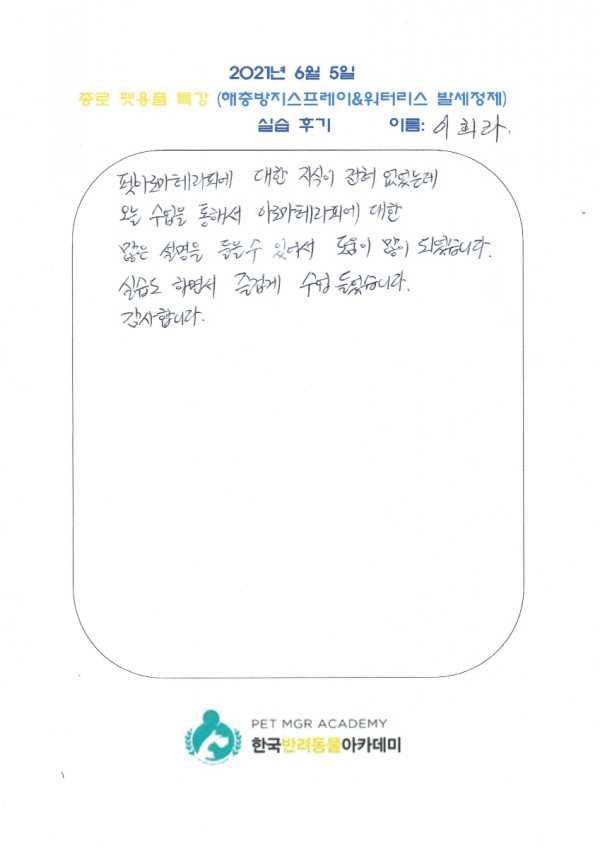 2021년 6월 5일
종로 펫용품 특강 (해충방지스프레이&워터리스 발세정제)
실습 후기 이름: 이희라.
펫아로마테라피에 대한 지식이 전혀 없었는데
오늘 수업을 통해서 아로마테라피에 대한
많은 설명을 들을 수 있어서 도움이 많이 되었습니다.
실습도 하면서 즐겁게 수업 들었습니다.
감사합니다.
PET MGR ACADEMY
한국반려동물아카데미